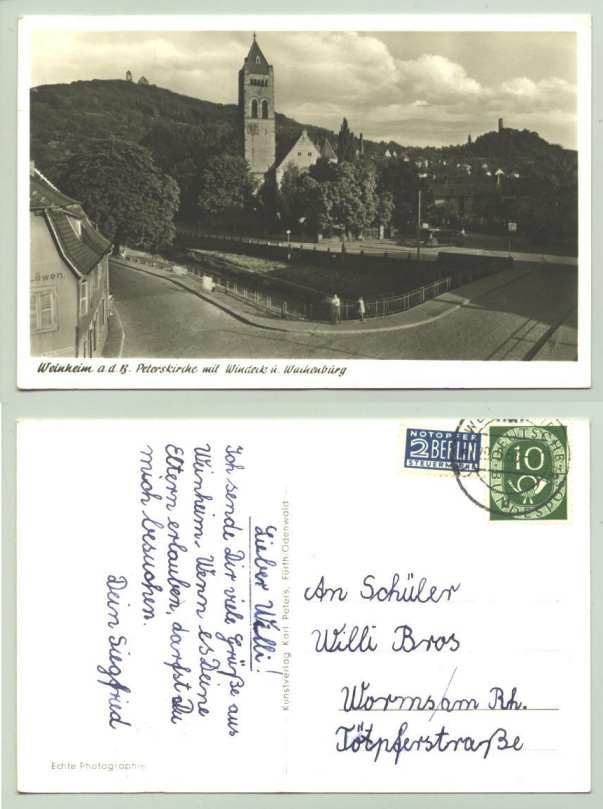 Löwen.
Weinheim a. d. B. Peterskirche mit Windeck u. Wachenburg
NOTOPFER
2 BERLIN
STEUERMARKE
DEUTSCHE
10
BUNDESPOST
Lieber Willi!
Ich sende Dir viele Grüße aus
Weinheim. Wenn es Deine
Eltern erlauben, darfst Du
mich besuchen.
Dein Siegfried
Kunstverlag Karl Peters, Fürth/Odenwald
Echte Photographie
An Schüler
Willi Bros
Worms/am Rh.
Tötpferstraße